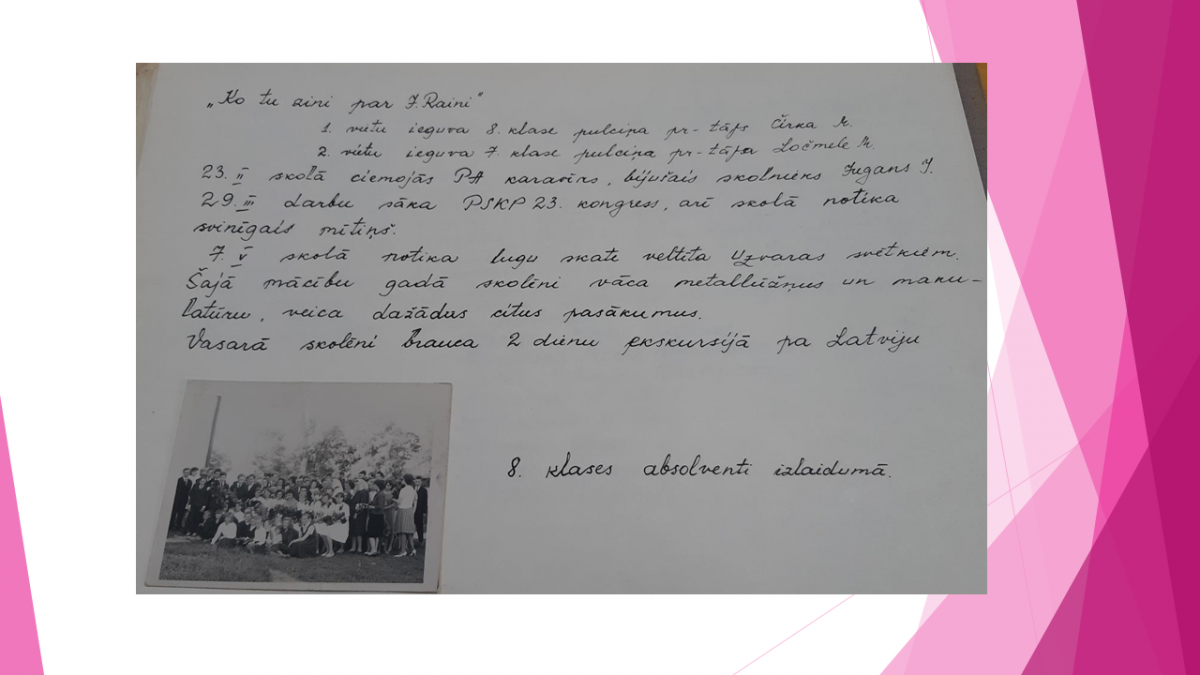 „Ko tu zini par J. Raini"
1. vietu ieguva 8. klase pulciņa pr-tājs Čirka M.
2. vietu ieguva 7. klase pulciņa pr-tāja Ločmele M.
23. II skolā ciemojās PA karavīrs, bijušais skolnieks Jugans J.
29. III darbu sāka PSKP 23. kongress, arī skolā notika
svinīgais mītiņš.
7. V skolā notika lugu skate veltīta Uzvaras svētkiem.
Šajā mācību gadā skolēni vāca metallūžņus un maku-
latūru, veica dažādus citus pasākumus.
Vasarā skolēni brauca 2 dienu ekskursijā pa Latviju
8. klases absolventi izlaidumā.